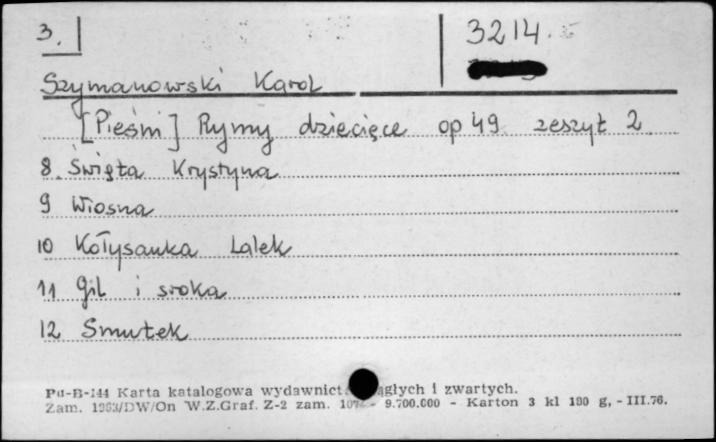 3. 3214
Szymanowski Karol
[Pieśni] Rymy dziecięce op 49 zeszyt 2
8. Święta Krystyna
9 Wiosna
10 Kołysanka Lalek
11 Gil i sroka
12 Smutek
Pu-B-144 Karta katalogowa wydawnictw ciągłych i zwartych.
Zam. 1963/DW/On W.Z.Graf. Z-2 zam. 9.700.000 - Karton 3 kl 180 g, - III.76.